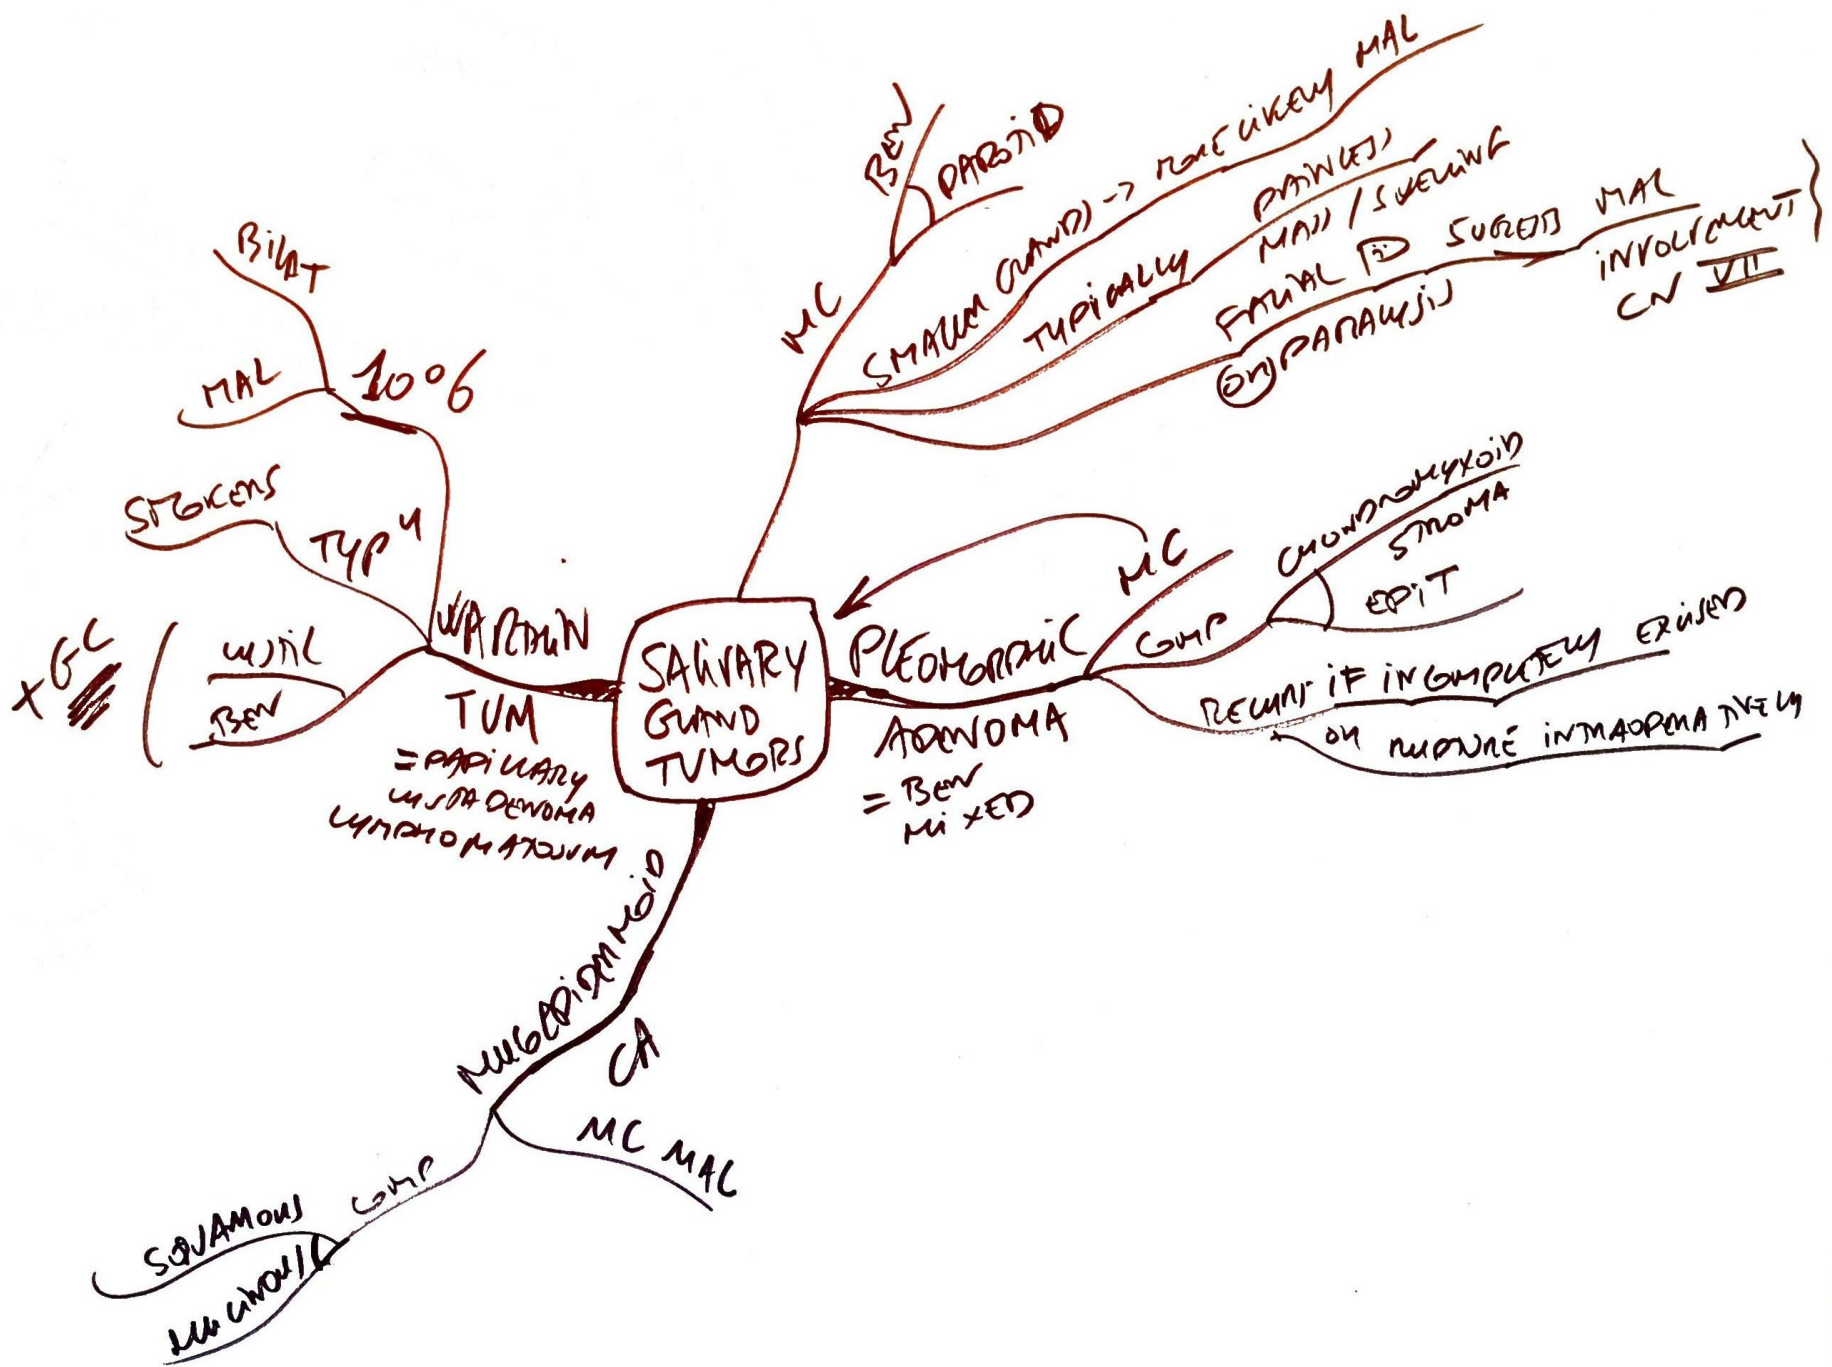 SALIVARY
GLAND
TUMORS
MC
BEN
PAROTID
SMALLER GLANDS -> MORE LIKELY MAL
TYPICALLY PAINLESS
MASS / SWELLING
FACIAL SUGGESTS MAL
(OR) PARALYSIS
INVOLVEMENT
CN VII
PLEOMORPHIC
ADENOMA
= BEN
MIXED
MC
COMP
CHONDROMYXOID
STROMA
EPIT
RECURS IF INCOMPLETELY EXCISED
OR RUPTURE INTRAOPERATIVELY
MUCOEPIDERMOID
CA
MC MAL
COMP
SQUAMOUS
MUCINOUS
WARTHIN
TUM
= PAPILLARY
CYSTADENOMA
LYMPHOMATOSUM
10%
BILAT
MAL
TYPY
SMOKERS
CYSTIC
BEN
+ GC